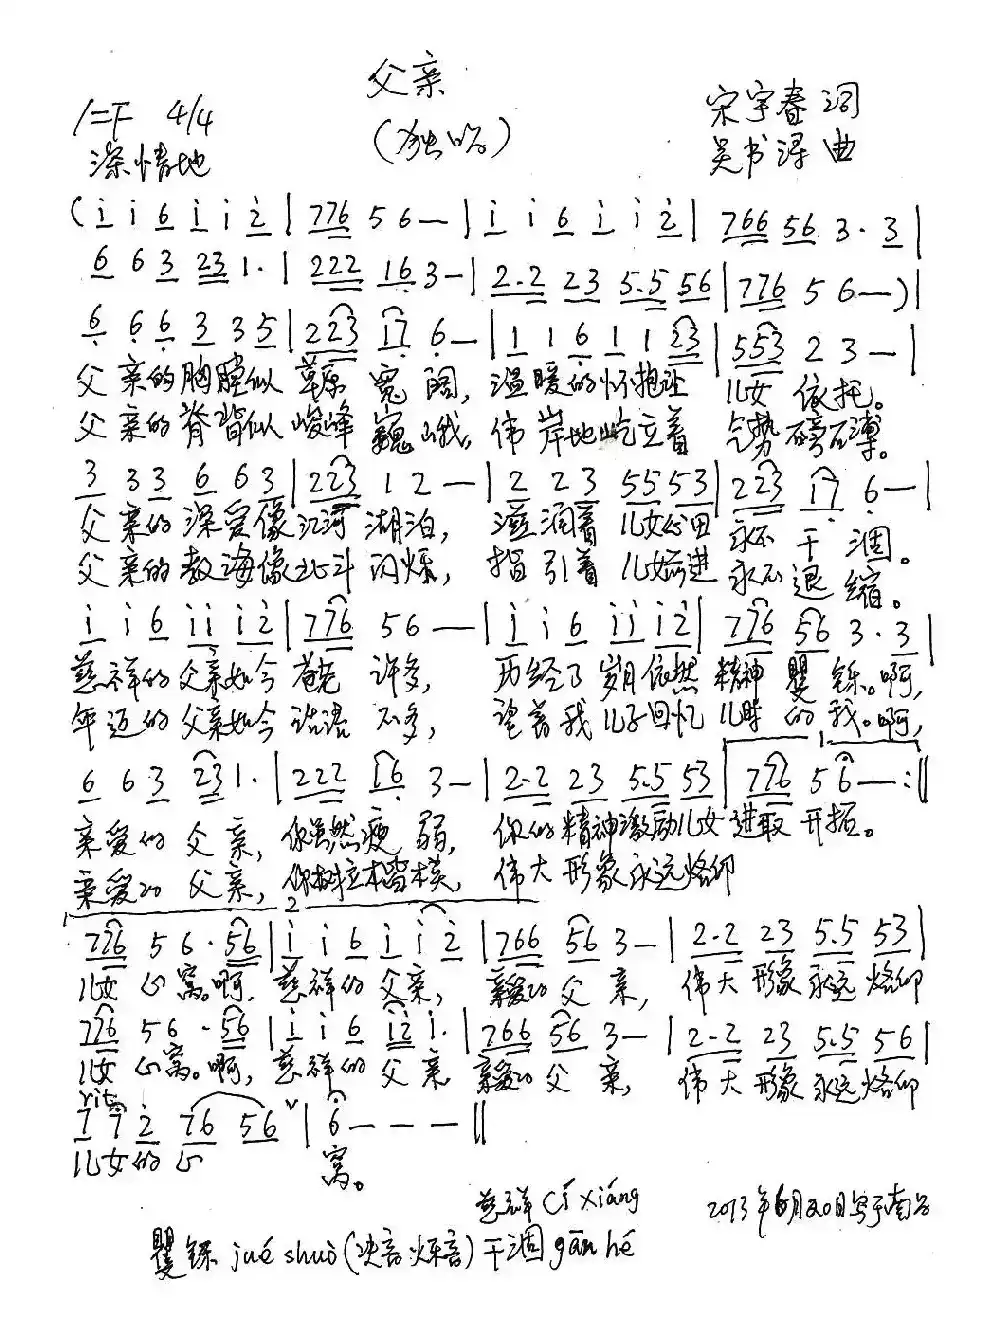 父亲
1=F 4/4
宋宇春 词
(独唱)
深情地
吴书浔 曲
(i i 6 i i 2̇ | 776 5 6 — | i i 6 i i 2̇ | 766 56 3· 3 |
6 6 3 23 1· | 222 16 3 — | 2·2 23 5·5 56 | 776 5 6 — ) |
6 6 6 3 3 5 | 223 17 6 — | 1 1 6 1 1 23 | 553 2 3 — |
父亲的胸膛似草原宽阔，温暖的怀抱让儿女依托。
父亲的脊背似峻峰巍峨，伟岸地屹立着气势磅礴。
3 3 3 6 6 3 | 223 1 2 — | 2 2 3 55 53 | 223 17 6 — |
父亲的深爱像江河湖泊，滋润着儿女心田永不干涸。
父亲的教诲像北斗闪烁，指引着儿女前进永不退缩。
i i 6 i i i 2̇ | 776 5 6 — | i i 6 i i i 2̇ | 776 56 3· 3 |
慈祥的父亲如今苍老许多，历经了岁月依然精神矍铄。啊，
年迈的父亲如今话语不多，望着我儿子回忆儿时的我。啊，
6 6 3 23 1· | 222 16 3 — | 2·2 23 5·5 53 | 776 5 6 — :||
亲爱的父亲，你虽然瘦弱，你的精神激励儿女进取开拓。
亲爱的父亲，你树立本当楷模，伟大形象永远烙印
2
776 5 6· 56 | i i 6 i i 2̇ | 766 56 3 — | 2·2 23 5·5 53 |
儿女心窝。啊，慈祥的父亲，亲爱的父亲，伟大形象永远烙印
776 5 6· 56 | i i 6 i 2̇ i· | 766 56 3 — | 2·2 23 5·5 56 |
儿女心窝。啊，慈祥的父亲，亲爱的父亲，伟大形象永远烙印
rit
7 7 2̇ 76 56 ∨ | 6 — — — ||
儿女的心窝。
慈祥 cí xiáng
2013年6月20日写于南谷
矍铄 jué shuò (决音烁音) 干涸 gān hé